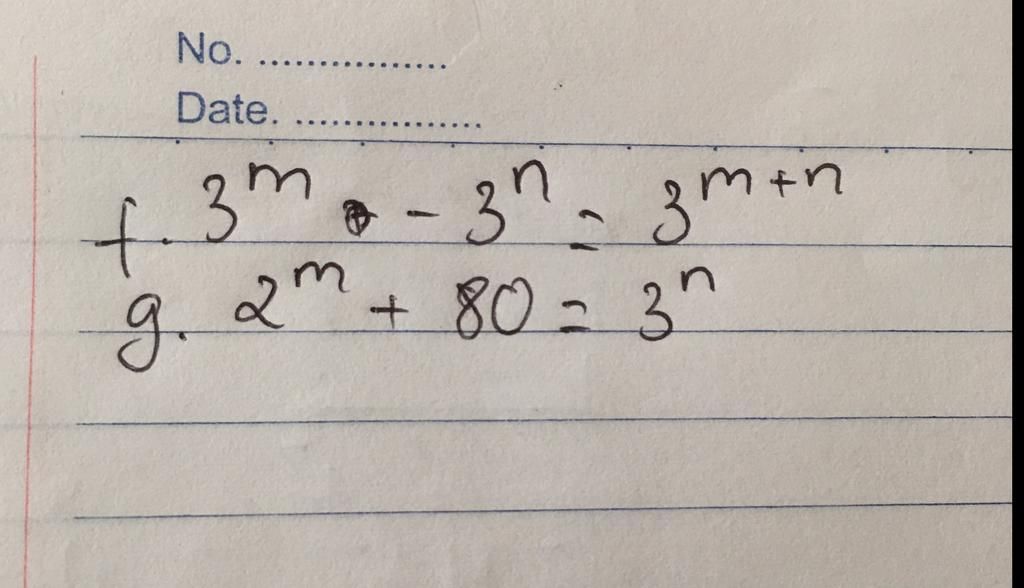 No. ................
Date. ................
f. 3^m - 3^n = 3^{m+n}
g. 2^m + 80 = 3^n